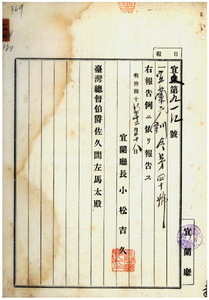 報
日
宜
第九一
號
一宜蘭
訓令第四十號
右報告例ニ依リ報告ス
明治四十
年十二月
八日
宜蘭廳長小松吉久
臺灣總督伯爵佐久間左馬太殿
宜蘭廳